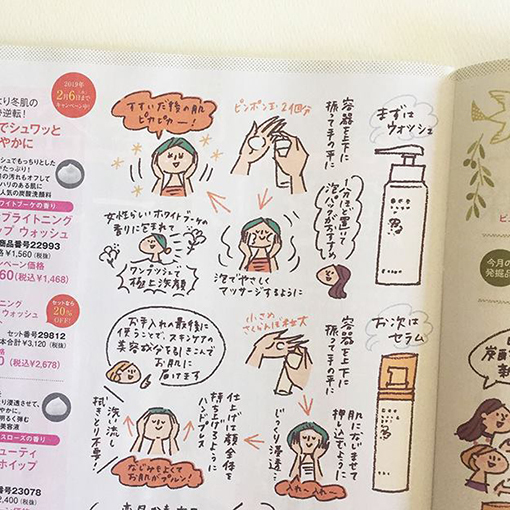 まずは
ウォッシュ
容器を上下に
振って手の平に
ピンポン玉2個分
1分ほど置いて
泡パックがおすすめ
泡でやさしく
マッサージするように
すすいだ後の肌
ピカピカー!
女性らしいホワイトブーケの
香りに包まれて
ワンプッシュで
極上洗顔
お次は
セラム
容器を上下に
振って手の平に
小さめ
さくらんぼ粒大
肌になじませて
押し込むように
じっくり浸透…
入れ〜入れ〜
仕上げは顔全体を
持ち上げるように
ハンドプレス
お手入れの最後に
使うことで、スキンケアの
美容成分を引きこんで
お肌に
届けます
洗い流し
拭きとり不要!
なじみもよくて
お肌がプルン!
2019年
2月6日まで
キャンペーン中!
り冬肌の
逆転!
でシュワッと
やかに
シュでもっちりとした
がたっぷり!
の汚れもオフして
ハリのある肌に
人気の炭酸洗顔料
ワイトブーケの香り
ブライトニング
ップ ウォッシュ
商品番号22993
格¥1,560(税抜)
ペーン価格
60(税込¥1,468)
セットなら
20%
OFF!
ニング
ウォッシュ
セット番号29812
本合計¥3,120(税抜)
(税込¥2,678)
浸透させて、
やかに。
明るく弾む
美容液
スローズの香り
ューティ
ホイップ
番号23078
2,400(税抜)
今月の
発掘品
炭酸
新